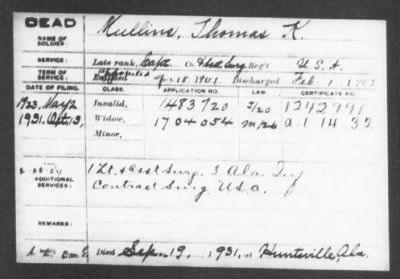 DEAD
NAME OF SOLDIER: Mullins, Thomas K.
SERVICE: Late rank, Capt. Surg. Reg't U.S.A.
TERM OF SERVICE: Enlisted appointed Apr 18, 1901 Discharged Feb 1
DATE OF FILING. CLASS. APPLICATION NO. LAW. CERTIFICATE NO.
1923, May 2 Invalid, 1483720 1242771
1931, Oct. 13, Widow, 1704054 a-1 14 32
Minor,
ADDITIONAL SERVICES: 1 Lt. & asst Surg. 3 Ala. Inf
Contract Surg. U.S.A.
REMARKS:
Died Sep. 19, 1931, at Huntsville, Ala.